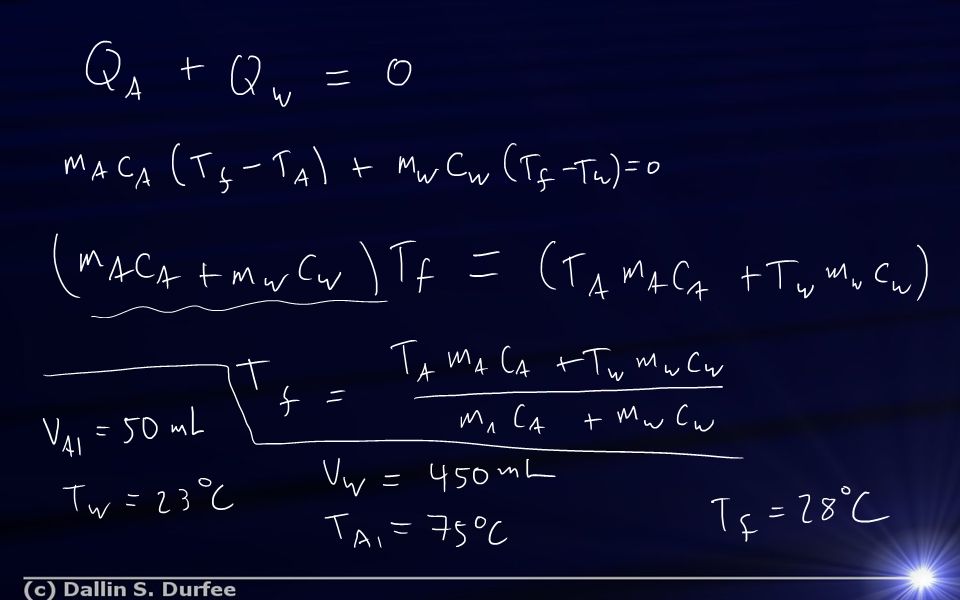 Q_A + Q_W = 0
m_A C_A (T_f - T_A) + m_W C_W (T_f - T_W) = 0
(m_A C_A + m_W C_W) T_f = (T_A m_A C_A + T_W m_W C_W)
T_f = (T_A m_A C_A + T_W m_W C_W) / (m_A C_A + m_W C_W)
V_Al = 50 mL
V_W = 450 mL
T_W = 23°C
T_Al = 75°C
T_f = 28°C
(c) Dallin S. Durfee